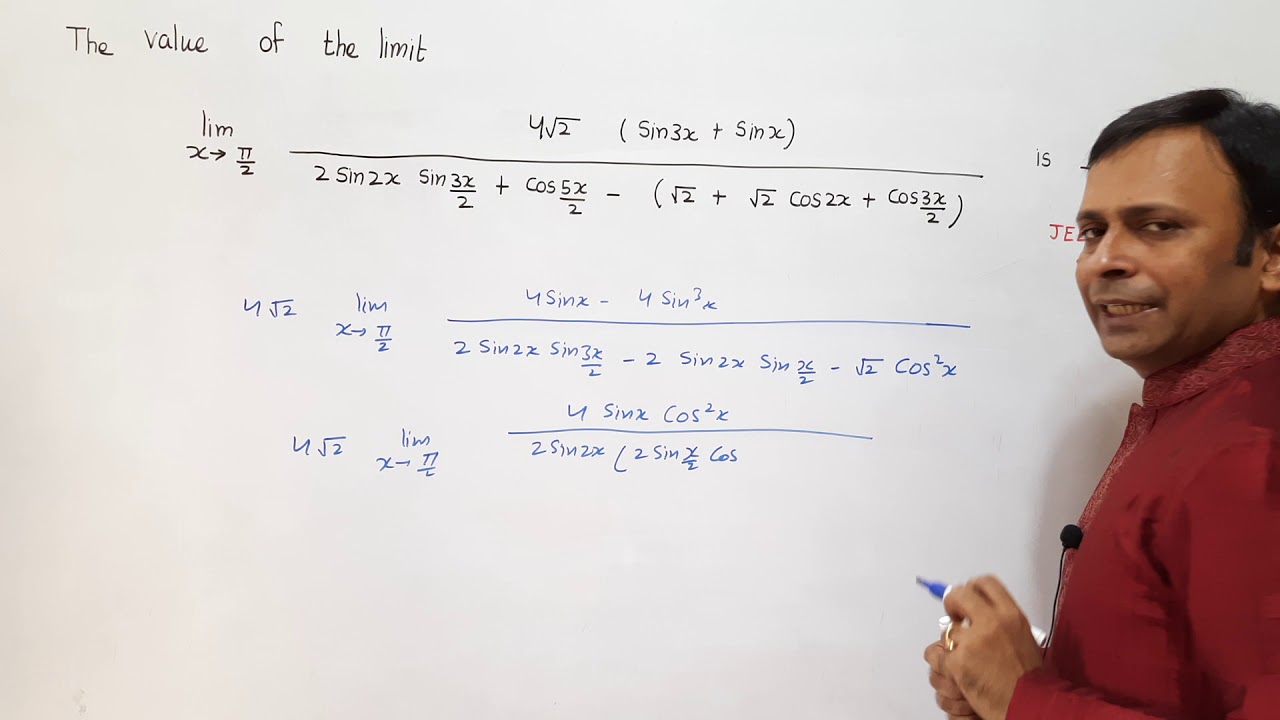 The value of the limit
lim x→π/2 4√2 (Sin3x + Sinx) / 2 Sin2x Sin 3x/2 + Cos 5x/2 − (√2 + √2 Cos2x + Cos 3x/2) is
4√2 lim x→π/2 4Sinx − 4Sin³x / 2 Sin2x Sin 3x/2 − 2 Sin2x Sin x/2 − √2 Cos²x
4√2 lim x→π/2 4 Sinx Cos²x / 2Sin2x (2 Sin x/2 Cos